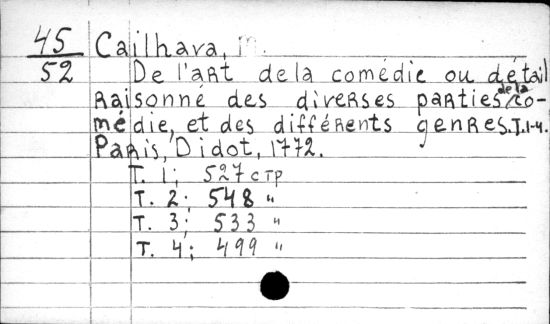 45
52
Cailhava, M.
De l'art de la comédie ou détail
raisonné des diverses parties de la co-
médie, et des différents genres. T.1-4.
Paris, Didot, 1772.
T. 1; 527 стр
T. 2; 548 "
T. 3; 533 "
T. 4; 499 "